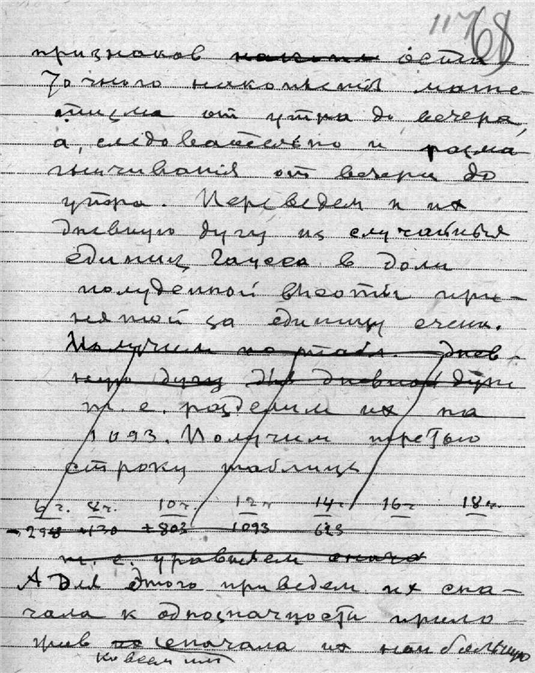 117 68
признаков оста
точного накопления магне
тизма от утра до вечера,
а, следовательно и разма
гничивания от вечера до
утра. Переведем и их
дневную дугу из случайных
единиц Гаусса в доли
полуденной высоты при-
нятой за единицу счета.
Получим по табл. днев-
ную дугу дневной дуги
т. е. разделим их на
1093. Получим третью
строку таблицы
6 ч. 8 ч. 10 ч. 12 ч 14 ч 16 ч. 18 ч.
+130 +803 1093 623
т. е. уравняем снача
А для этого приведем их сна-
чала к однозначности прило-
жив сначала их наибольшую
ко всем им